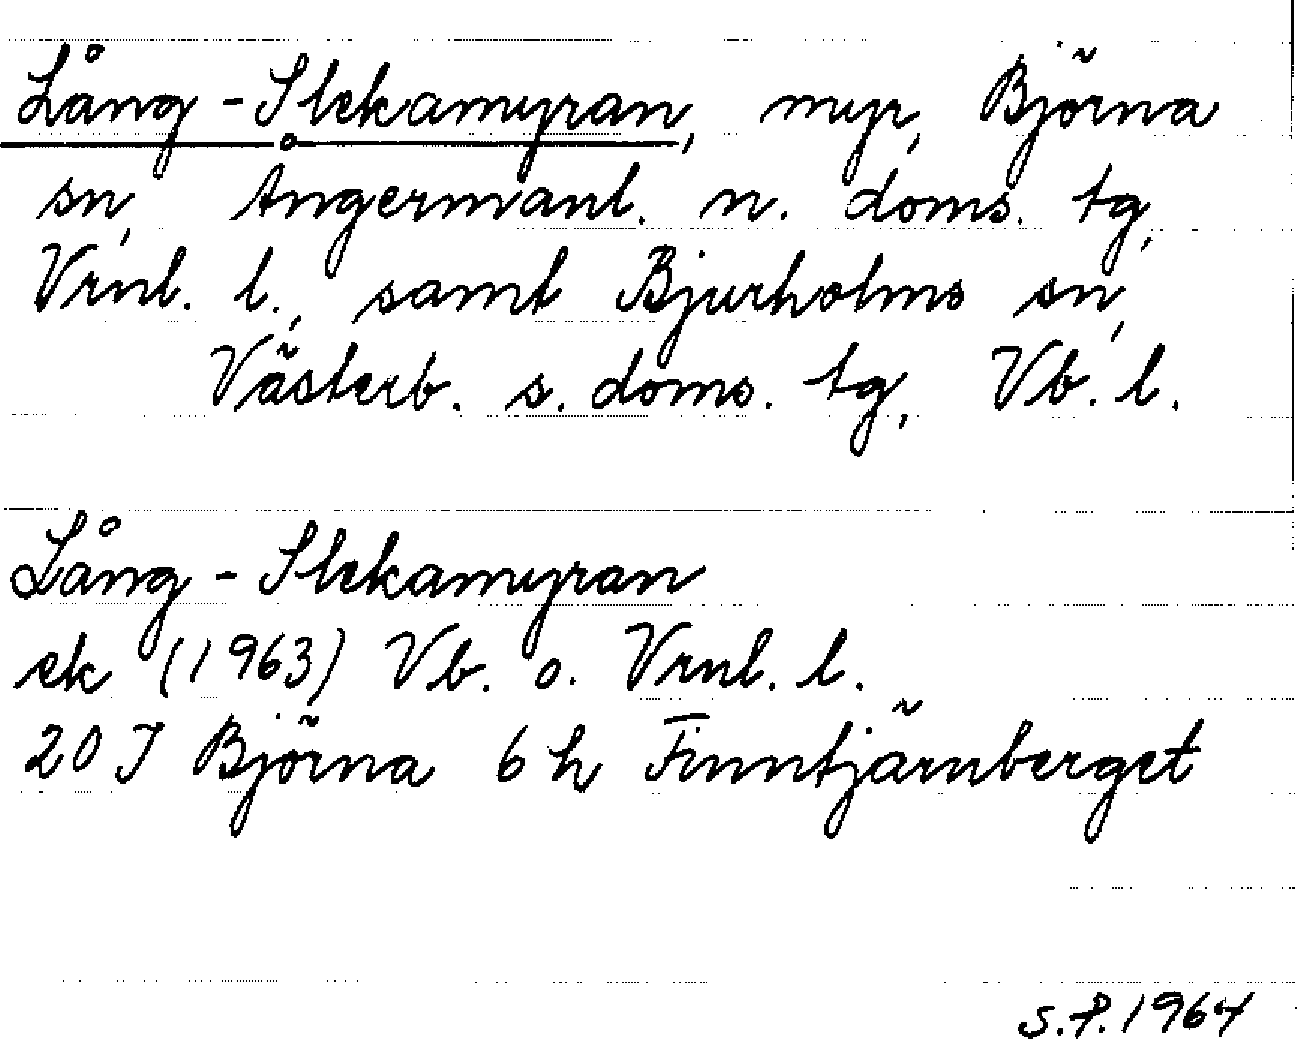 Lång-Slekamyran, myr, Björna
sn, Ångermanl. n. doms. tg,
Vrnl. l., samt Bjurholms sn,
Västerb. s. doms. tg, Vb. l.
Lång-Slekamyran
ek (1963) Vb. o. Vrnl. l.
20 J Björna 6 h Finntjärnberget
S.P. 1964